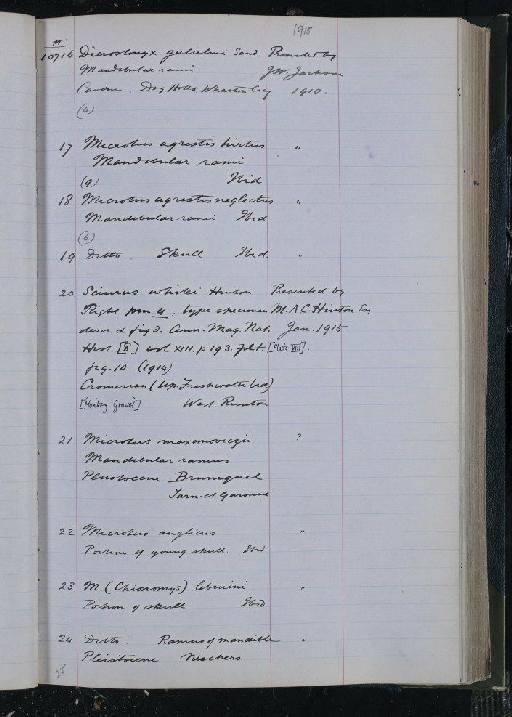 1915
M
10716 Dicrostonyx gulielmi Sanf Presented by
Mandibular rami J W Jackson
Cavern. Dog Holes Warton Crag 1910.
(a)
17 Microtus agrestis "
Mandibular rami
(9) Ibid
18 Microtus agrestis neglectus "
Mandibular rami Ibid
(6)
19 Ditto. Skull Ibid. "
20 Sciurus whitei Hinton Presented by
Right pm 4. type specimen M. A C Hinton Esq
descr & fig'd. Ann. Mag. Nat. Jan. 1915
Hist [8] vol XIII. p 193. [Plate VIII].
fig. 10 (1914)
Cromerian (Up. Freshwater bed)
[Monkey Gravel] West Runton
21 Microtus ?
Mandibular ramus
Pleistocene Bruniquel
Tarn et Garonne
22 Microtus anglicus "
Portion of young skull. Ibid
23 M (Chionomys) lebruni "
Portion of skull Ibid
24 Ditto. Ramus of mandible "
Pleistocene